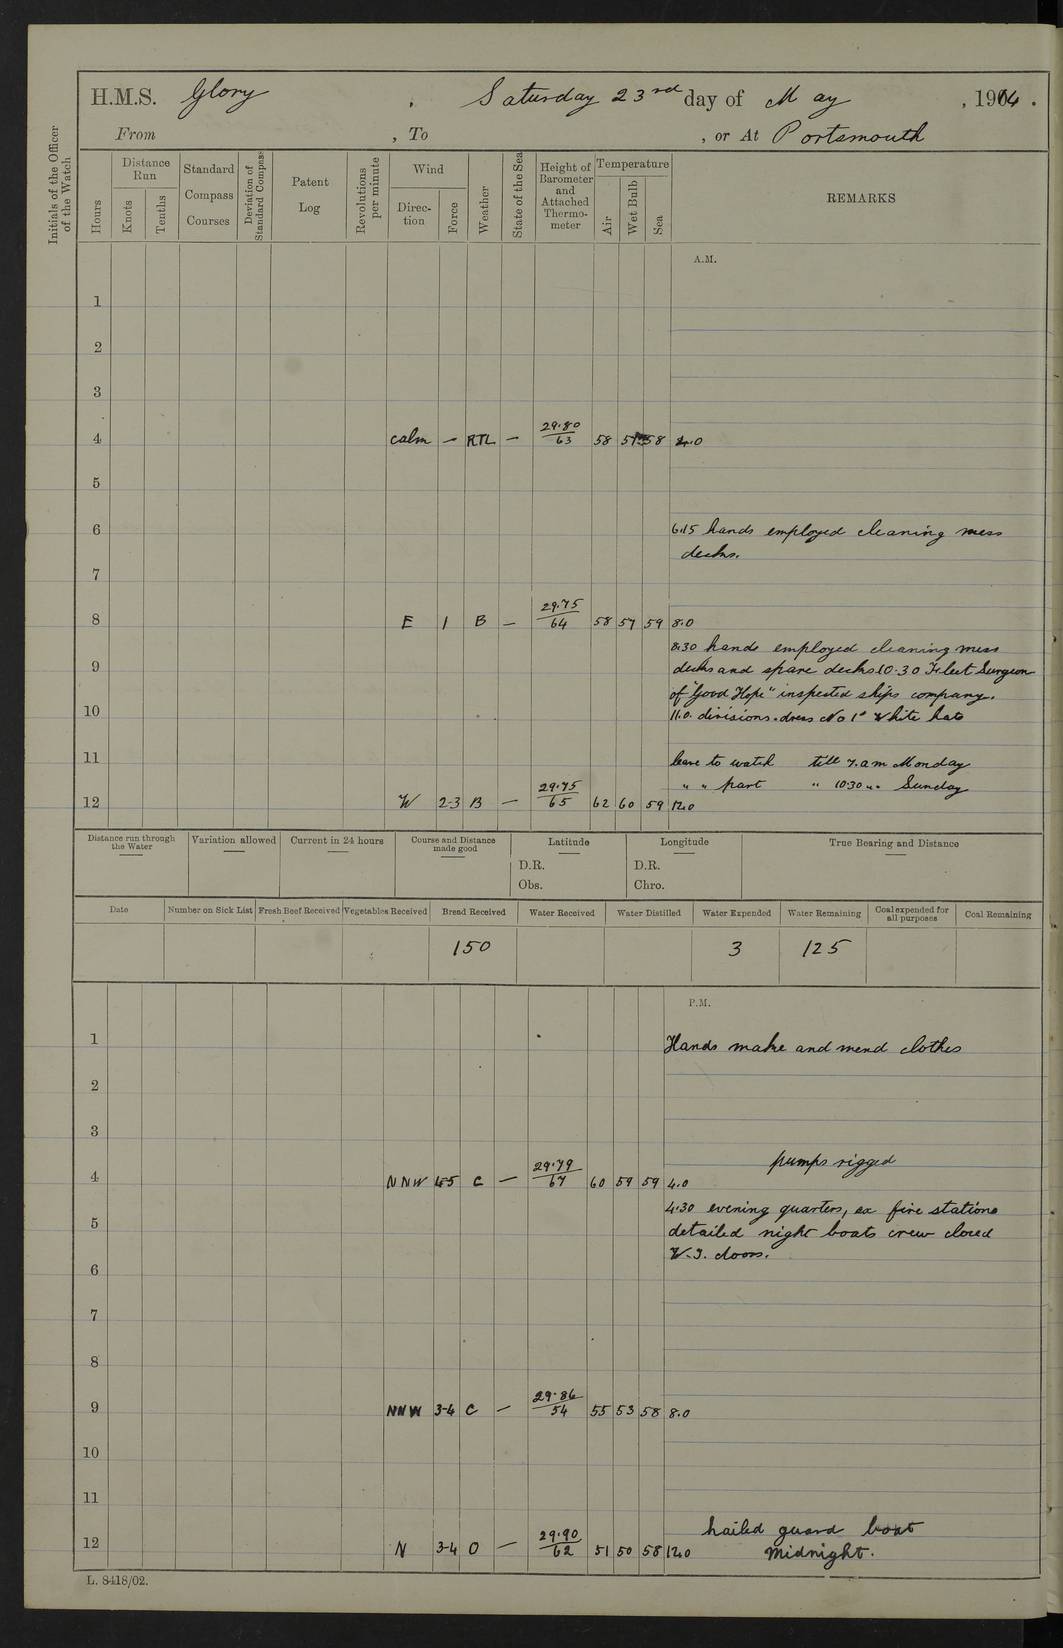 H.M.S. Glory, Saturday 23rd day of May, 1914.
From , To , or At Portsmouth
Initials of the Officer of the Watch
Hours
Distance Run
Knots
Tenths
Standard Compass Courses
Deviation of Standard Compass
Patent Log
Revolutions per minute
Wind
Direction
Force
Weather
State of the Sea
Height of Barometer and Attached Thermometer
Temperature
Air
Wet Bulb
Sea
REMARKS
A.M.
1
2
3
4 calm — RTL — 29.80/63 58 57 58 4.0
5
6 6.15 hands employed cleaning mess
decks.
7
8 E 1 B — 29.75/64 58 57 59 8.0
8.30 hands employed cleaning mess
9 decks and spare decks 10.30 Fleet Surgeon
of "Good Hope" inspected ships company.
10 11.0. divisions. dress No 1s White hats
11 leave to watch till 7. am Monday
" " part " 10.30 " . Sunday
12 W 2-3 B — 29.75/65 62 60 59 12.0
Distance run through the Water
Variation allowed
Current in 24 hours
Course and Distance made good
Latitude
D.R.
Obs.
Longitude
D.R.
Chro.
True Bearing and Distance
Date Number on Sick List Fresh Beef Received Vegetables Received Bread Received Water Received Water Distilled Water Expended Water Remaining Coal expended for all purposes Coal Remaining
150 3 125
P.M.
1 Hands make and mend clothes
2
3
pumps rigged
4 NNW 4-5 C — 29.79/67 60 59 59 4.0
4.30 evening quarters, ex fire stations
5 detailed night boats crew closed
W.T. doors.
6
7
8
9 NNW 3-4 C — 29.86/54 55 53 58 8.0
10
11
hailed guard boat
12 N 3-4 O — 29.90/62 51 50 58 12.0 Midnight.
L. 8418/02.